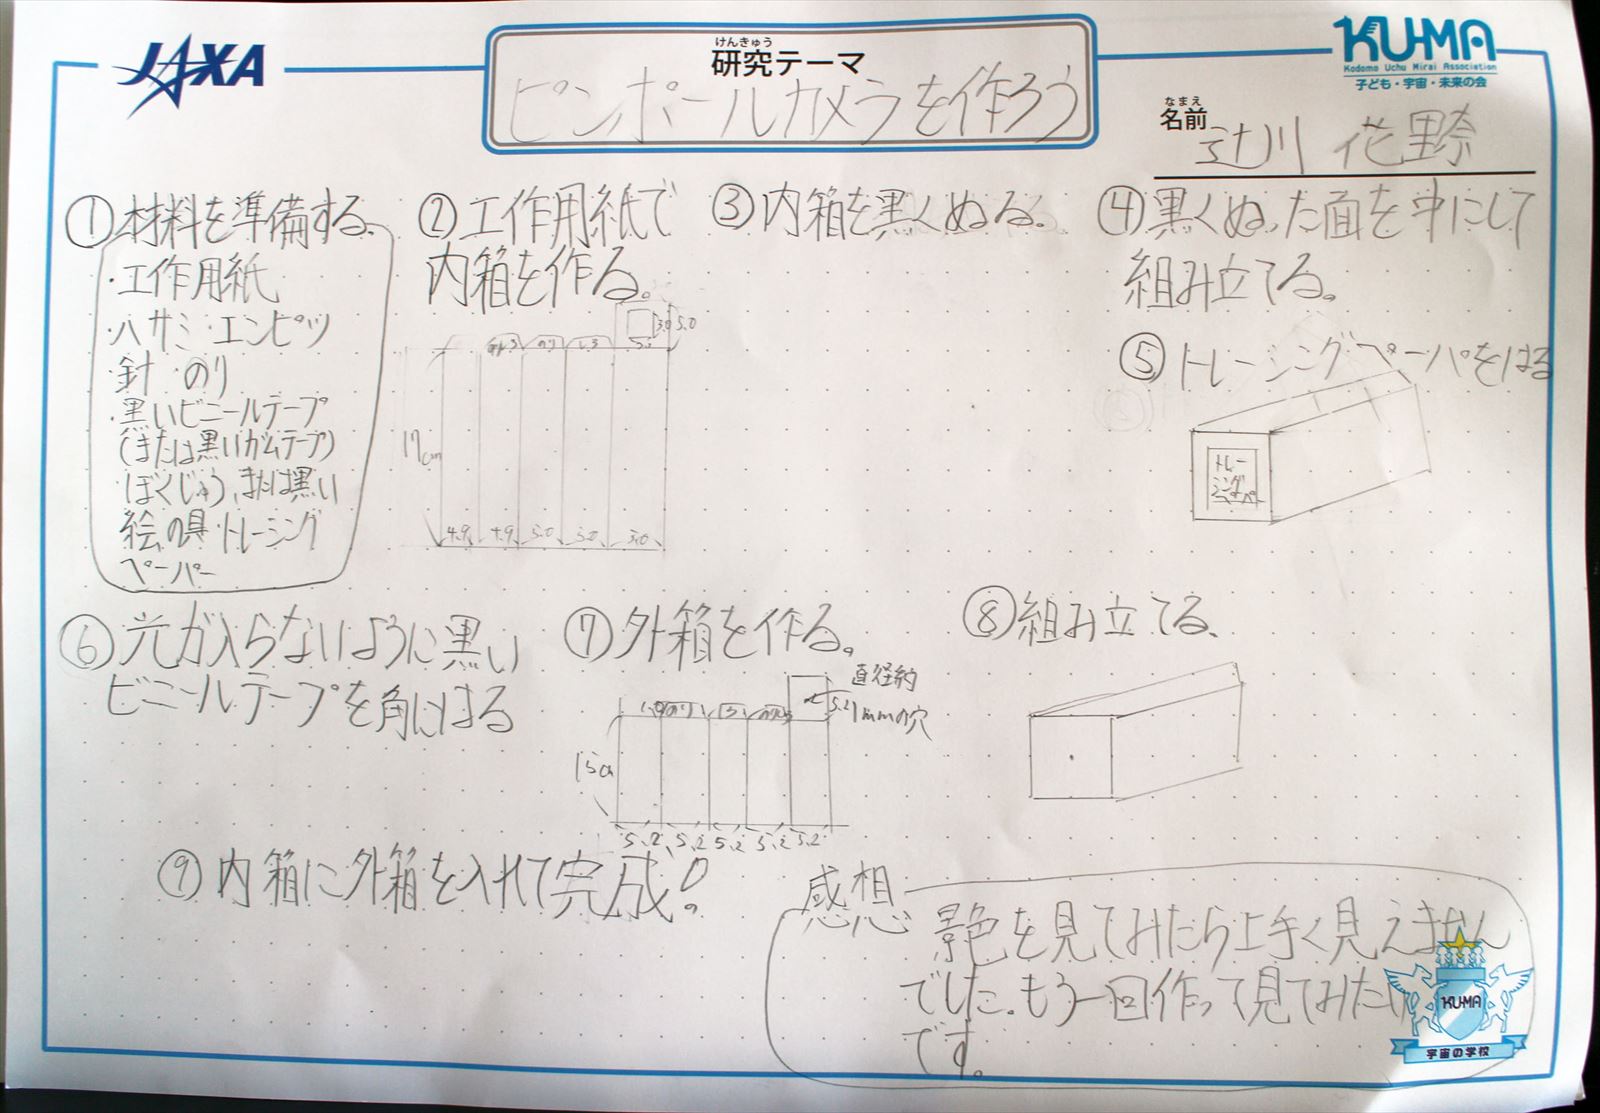 JAXA
けんきゅう
研究テーマ
ピンホールカメラを作ろう
KU-MA
Kodomo Uchu Mirai Association
子ども・宇宙・未来の会
なまえ
名前 辻川 花野
①材料を準備する、
・工作用紙
・ハサミ・エンピツ
針 のり
・黒いビニールテープ
(または黒いガムテープ)
ぼくじゅう、または黒い
絵の具・トレーシング
ペーパー
②工作用紙で
内箱を作る。
のり
3.0
5.0
17cm
4.9 4.9 5.0 5.0 5.0
③内箱を黒くぬる。
④黒くぬった面を中にして
組み立てる。
⑤トレーシングペーパをはる
トレー
シング
ペパー
⑥光が入らないように黒い
ビニールテープを角にはる
⑦外箱を作る。
直径約
1mmの穴
5.2
のり
15cm
5.2 5.2 5.2 5.2 5.2
⑧組み立てる、
⑨内箱に外箱を入れて完成!
感想
景色を見てみたら上手く見えません
でした。もう一回作って見てみたい
です。
KU-MA
宇宙の学校